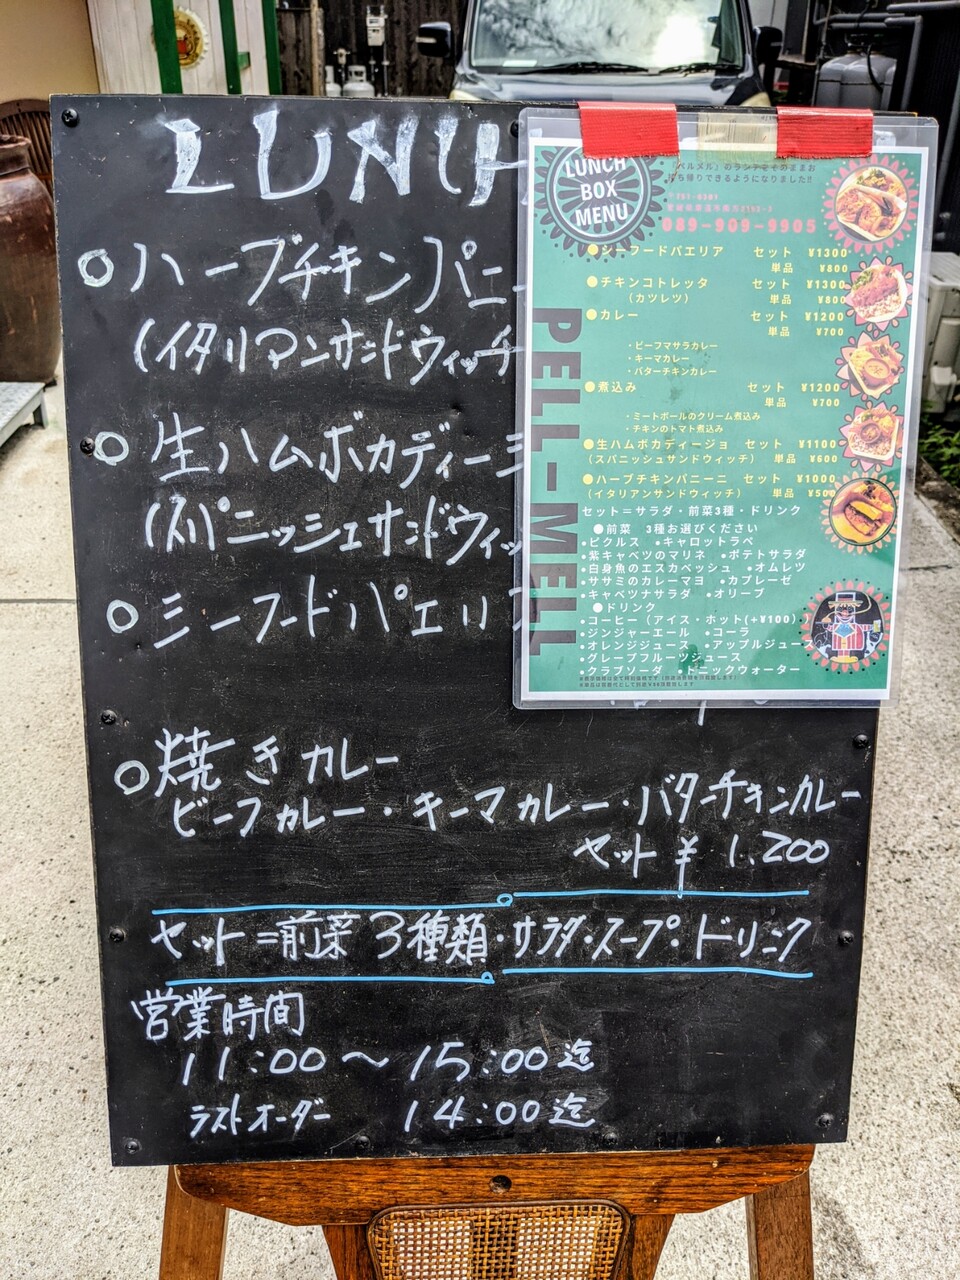 LUNCH
○ハーブチキンパニー
(イタリアンサンドウィッチ
○生ハムボカディージ
(スパニッシュサンドウィッ
○シーフードパエリア
○焼きカレー
ビーフカレー・キーマカレー・バターチキンカレー
セット ¥1,200
セット=前菜3種類・サラダ・スープ・ドリンク
営業時間
11:00〜15:00迄
ラストオーダー 14:00迄
LUNCH
BOX
MENU
「ペルメル」のランチをそのままお
持ち帰りできるようになりました!!
089-909-9905
PELL-MELL
●シーフードパエリア セット ¥1300
単品 ¥800
●チキンコトレッタ セット ¥1300
(カツレツ) 単品 ¥800
●カレー セット ¥1200
単品 ¥700
・ビーフマサラカレー
・キーマカレー
・バターチキンカレー
●煮込み セット ¥1200
単品 ¥700
・ミートボールのクリーム煮込み
・チキンのトマト煮込み
●生ハムボカディージョ セット ¥1100
(スパニッシュサンドウィッチ) 単品 ¥600
●ハーブチキンパニーニ セット ¥1000
(イタリアンサンドウィッチ) 単品 ¥500
セット=サラダ・前菜3種・ドリンク
●前菜 3種お選びください
●ピクルス ●キャロットラペ
●紫キャベツのマリネ ●ポテトサラダ
●白身魚のエスカベッシュ ●オムレツ
●ササミのカレーマヨ ●カプレーゼ
●キャベツナサラダ ●オリーブ
●ドリンク
●コーヒー(アイス・ホット(+¥100))
●ジンジャーエール ●コーラ
●オレンジジュース ●アップルジュース
●グレープフルーツジュース
●クラブソーダ ●トニックウォーター